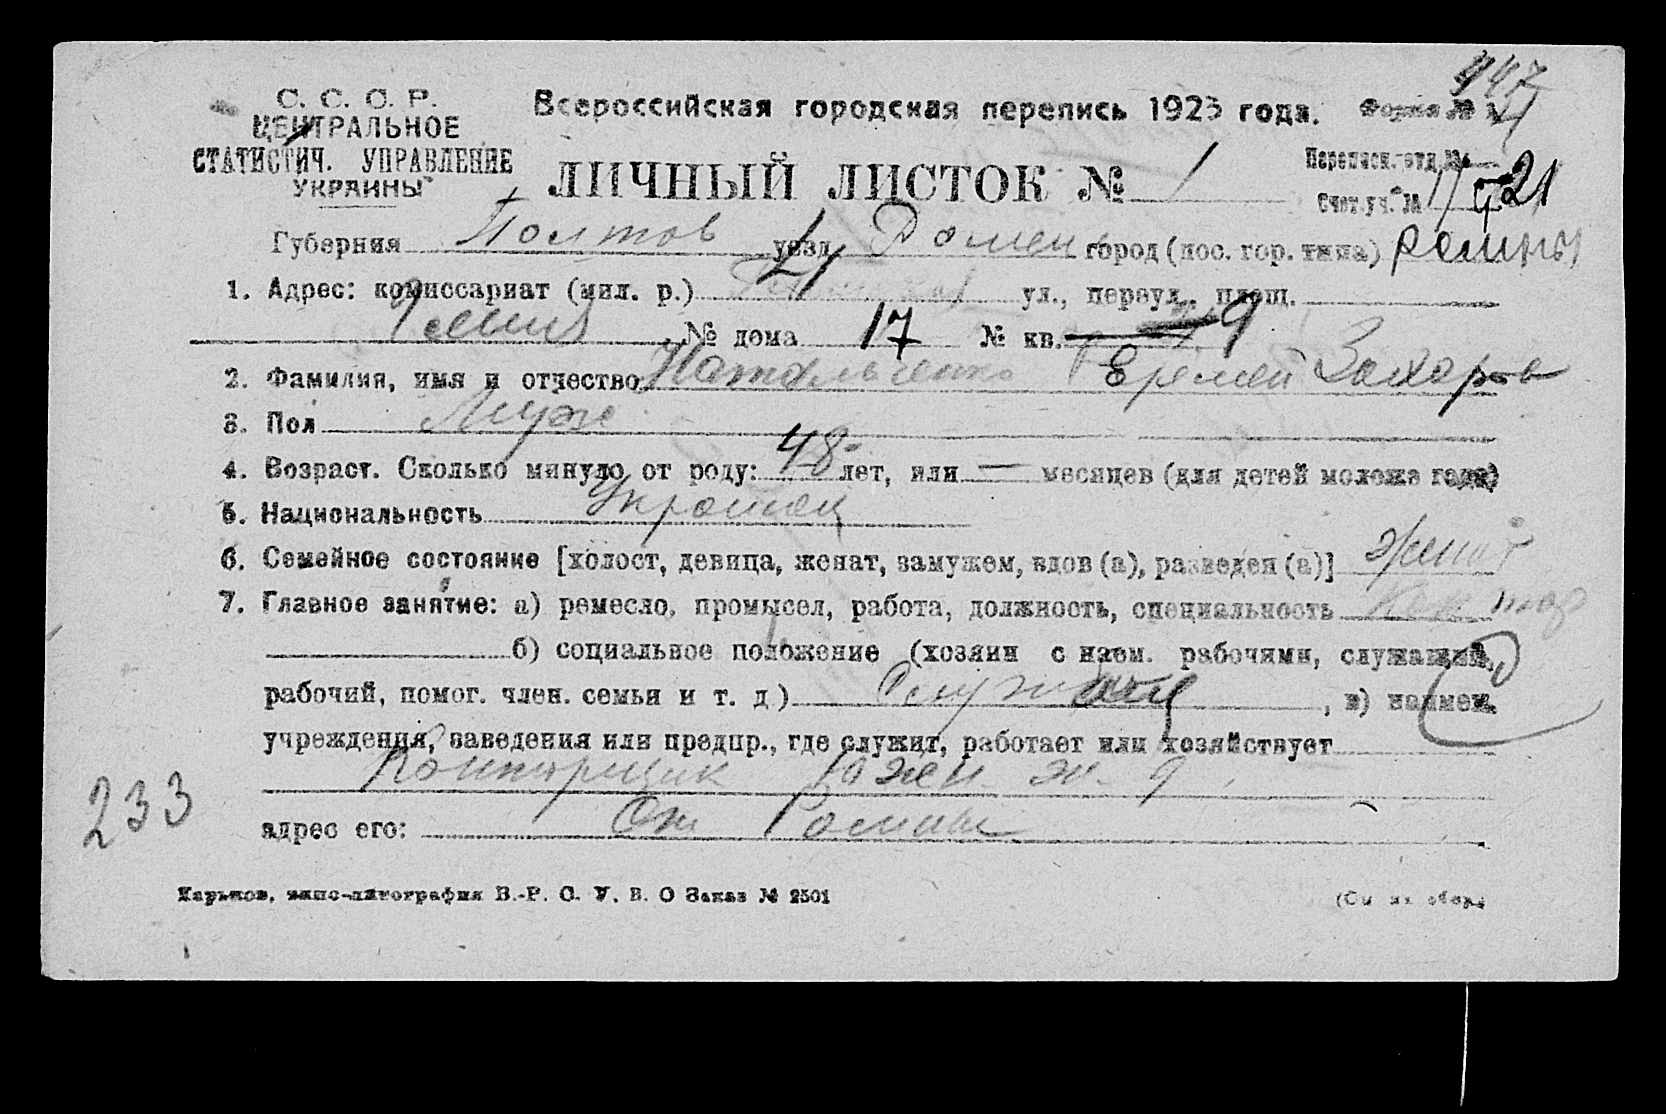 447
С. С. С. Р.
ЦЕНТРАЛЬНОЕ
СТАТИСТИЧ. УПРАВЛЕНИЕ
УКРАИНЫ
Всероссийская городская перепись 1923 года. Форма №
ЛИЧНЫЙ ЛИСТОК № 1
Переписн. отд. №
Счет. уч. № 21
Губерния Полтов уезд Ромен город (пос. гор. типа) Ромны
1. Адрес: комиссариат (мил. р.) ул., переул., площ.
№ дома 17 № кв. 9
2. Фамилия, имя и отчество Еремей Захаров
3. Пол Муж
4. Возраст. Сколько минуло от роду: 48 лет, или — месяцев (для детей моложе года)
5. Национальность Украинец
6. Семейное состояние [холост, девица, женат, замужем, вдов (а), разведен (а)] женат
7. Главное занятие: а) ремесло, промысел, работа, должность, специальность
б) социальное положение (хозяин с наем. рабочими, служащий,
рабочий, помог. член. семьи и т. д) Служащ , в) наимен.
учреждения, заведения или предпр., где служит, работает или хозяйствует
Конторщик Южн. ж. д
адрес его: Ст Ромны
233
Харьков, типо-литография В.-Р. С. У. В. О Заказ № 2501
(См на обор.